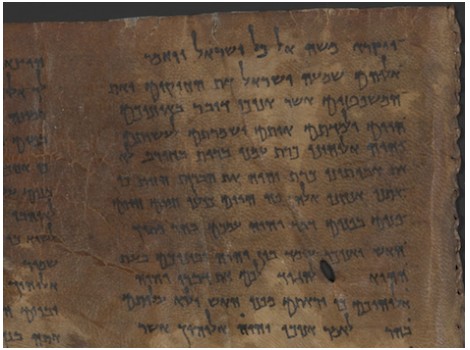 ויקרא משה אל כל ישראל ויאמר
אליהם שמע ישראל את החוקים ואת
המשפטים אשר אנוכי דובר באוזניכם
היום ולמדתם אותם ושמרתם לעשותם
יהוה אלוהינו כרת עמנו ברית בחורב לא
את אבותינו כרת יהוה את הברית הזות כי
אתנו אנחנו אלה פה היום כולנו חיים היום
פנים בפנים דבר יהוה עמכם בהר מתוך
האש ואנוכי עומד בין יהוה וביניכם בעת
ההיא להגיד לכם את דברי יהוה
אלוהיכם כי יראתם מפני האש ולא עליתם
בהר לאמר אנוכי יהוה אלוהיך אשר